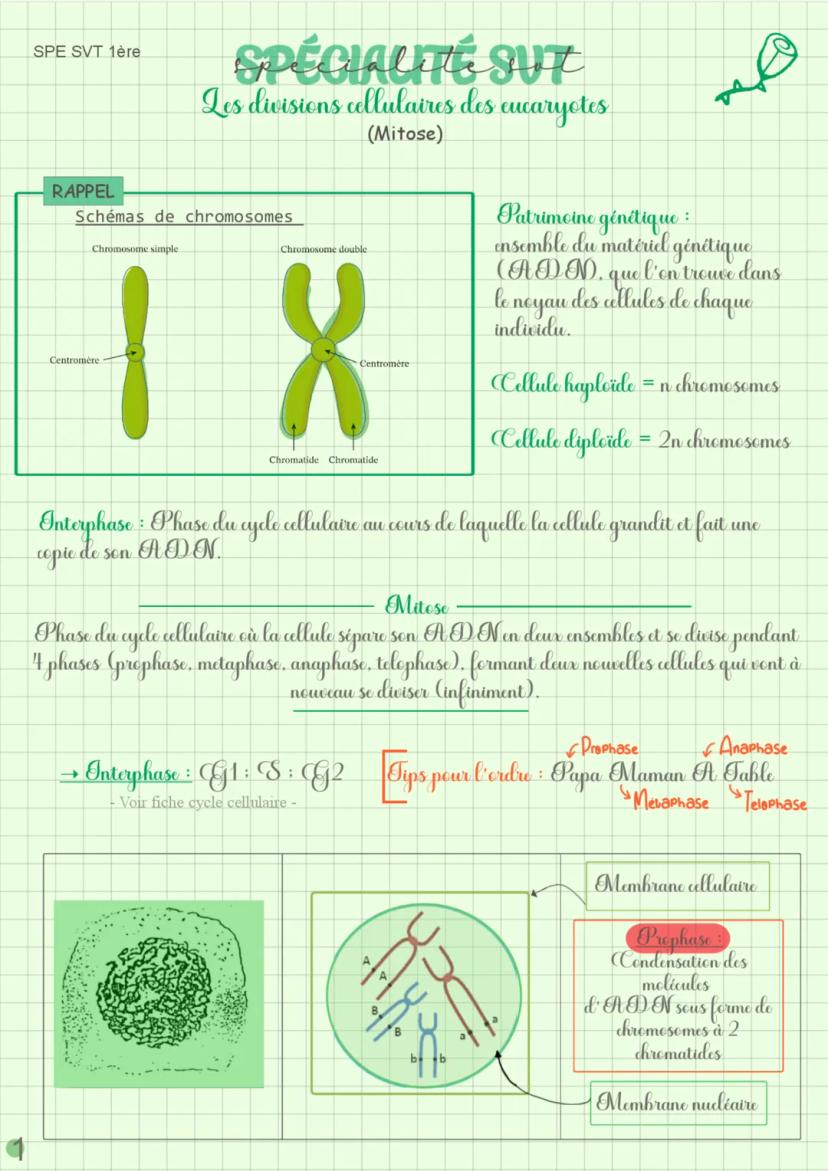 SPE SVT 1ère
SPÉCIALITÉ SVT
specialite svt
Les divisions cellulaires des eucaryotes
(Mitose)
RAPPEL
Schémas de chromosomes
Chromosome simple
Chromosome double
Centromère
Centromère
Chromatide Chromatide
Patrimoine génétique :
ensemble du matériel génétique
(ADN), que l'on trouve dans
le noyau des cellules de chaque
individu.
Cellule haploïde = n chromosomes
Cellule diploïde = 2n chromosomes
Interphase : Phase du cycle cellulaire au cours de laquelle la cellule grandit et fait une
copie de son ADN.
Mitose
Phase du cycle cellulaire où la cellule sépare son ADN en deux ensembles et se divise pendant
4 phases (prophase, metaphase, anaphase, telophase), formant deux nouvelles cellules qui vont à
nouveau se diviser (infiniment).
→ Interphase : G1 : S : G2
- Voir fiche cycle cellulaire -
Prophase Anaphase
Tips pour l'ordre : Papa Maman A Table
Metaphase Telophase
A
A
B
B
b b
a
a
Membrane cellulaire
Prophase :
Condensation des
molécules
d'ADN sous forme de
chromosomes à 2
chromatides
Membrane nucléaire
1